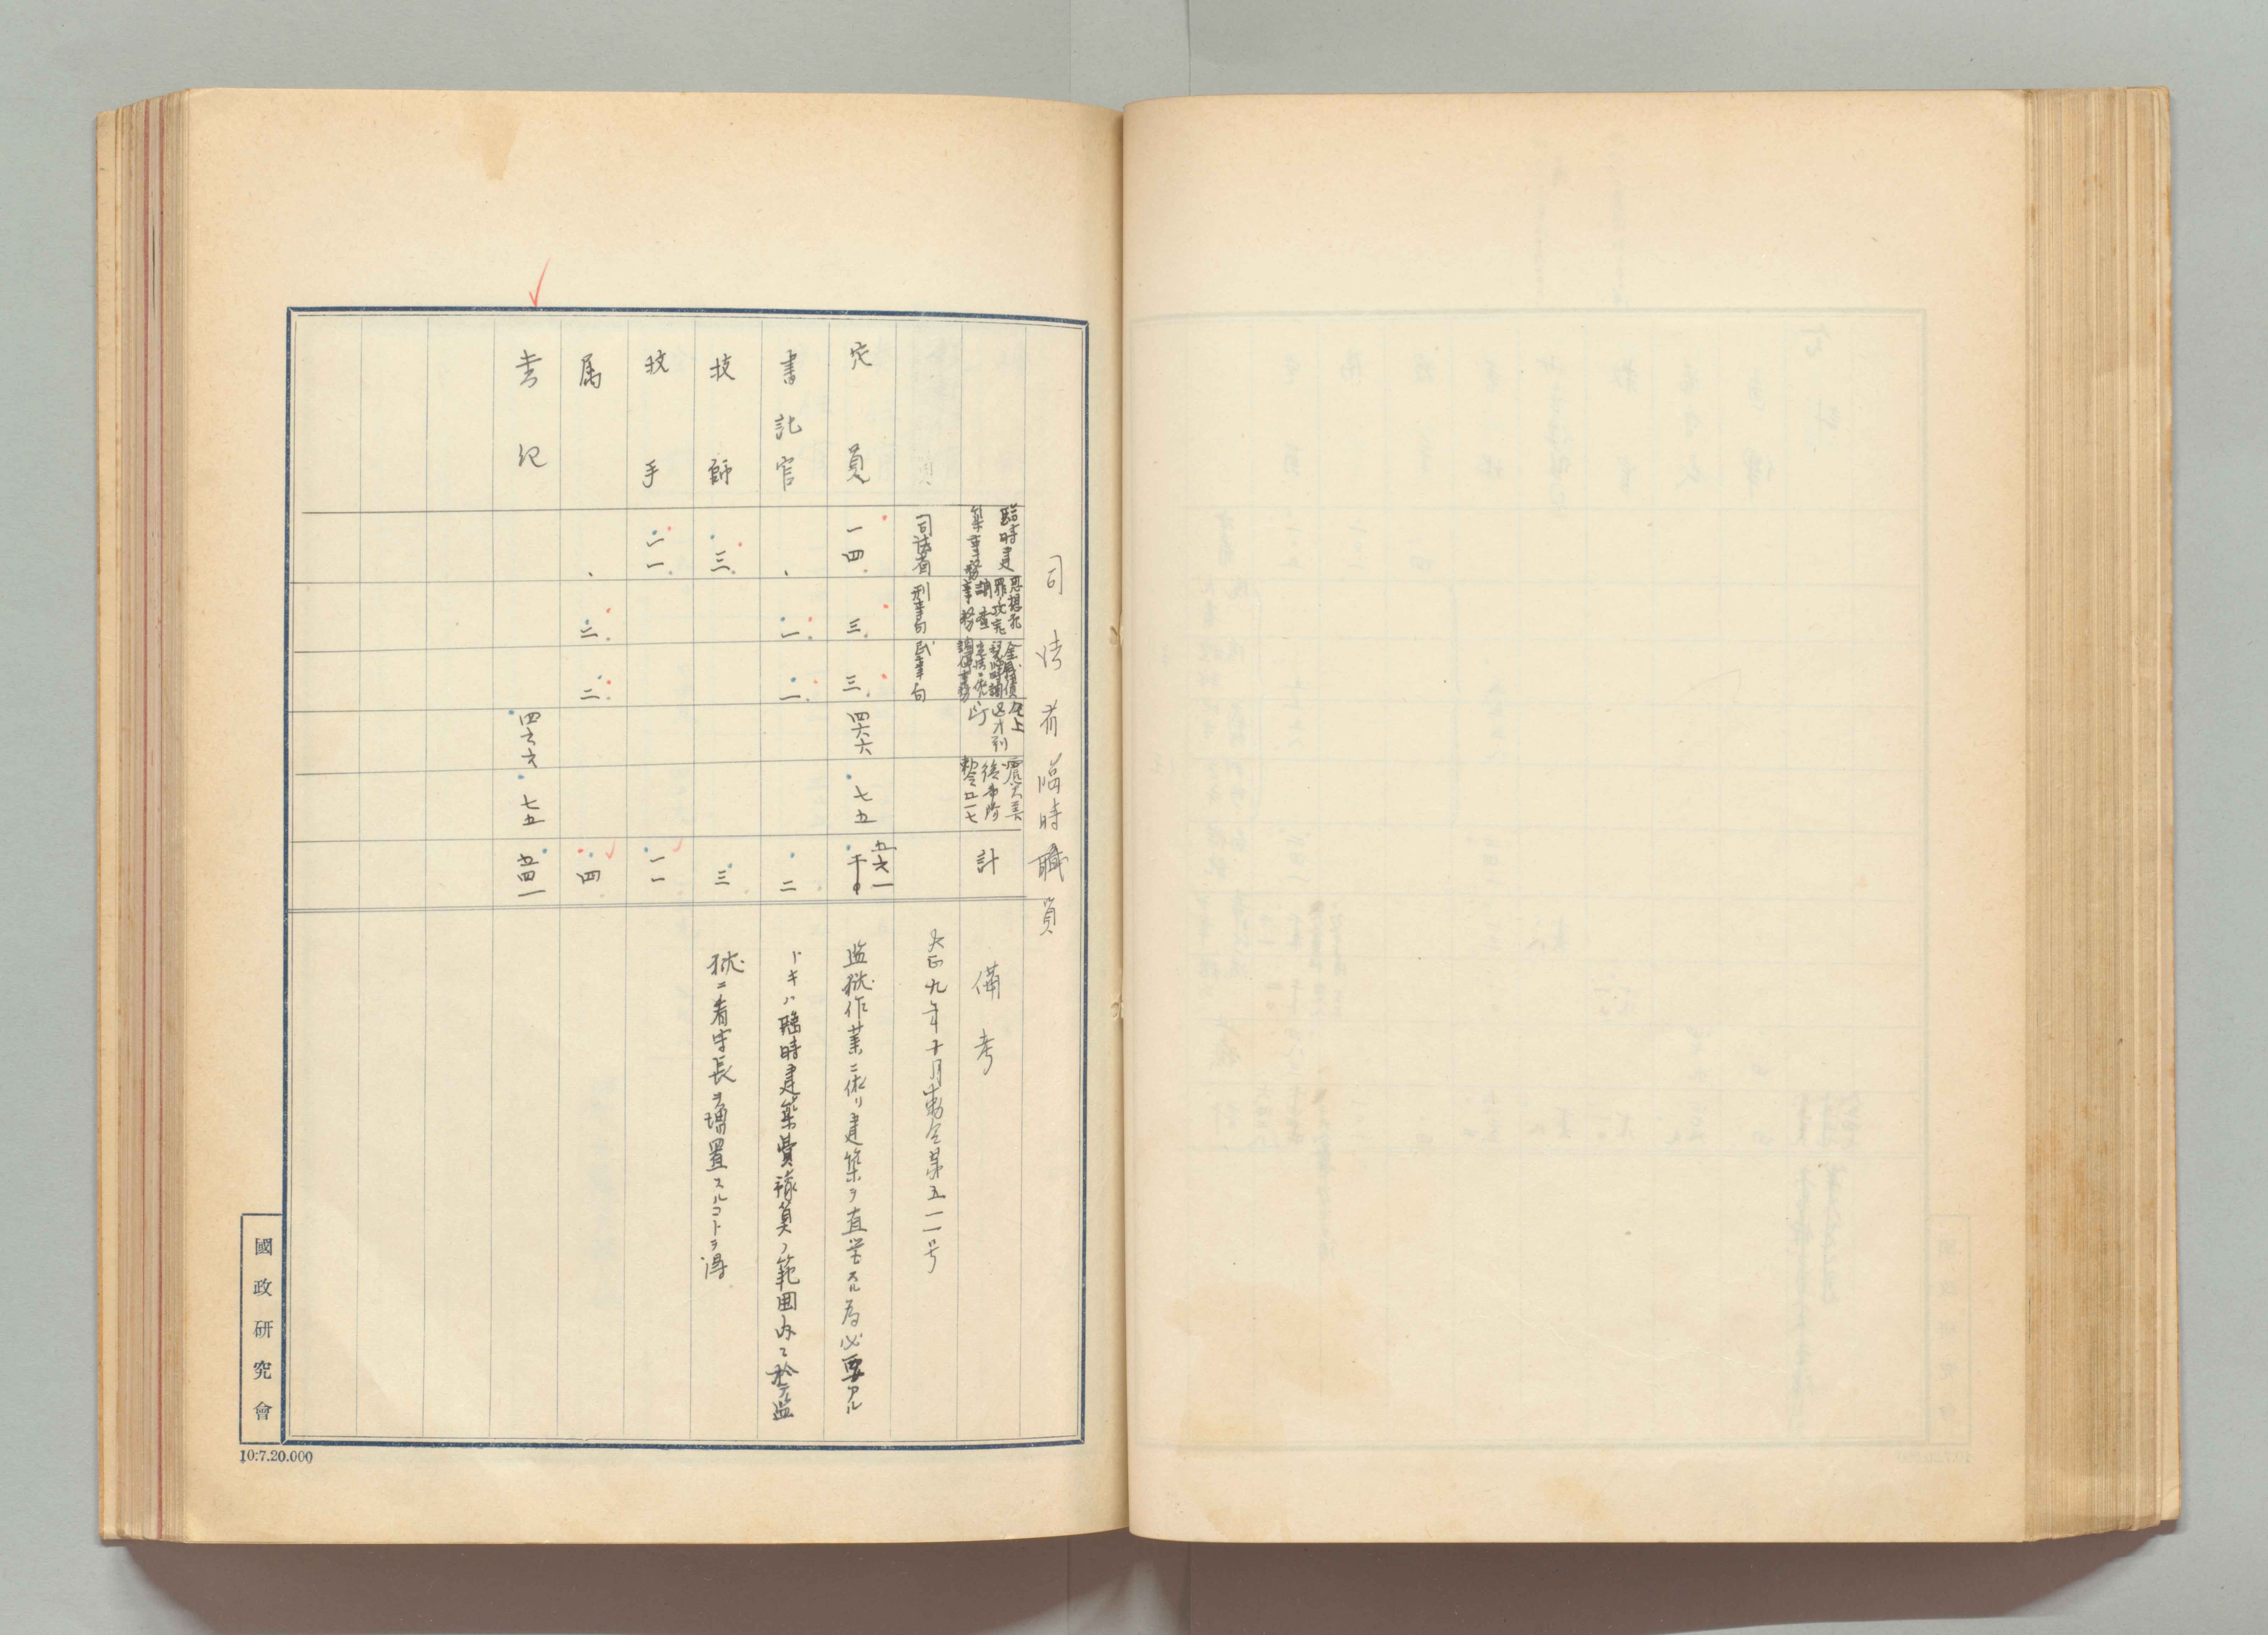 司法省臨時職員
臨時建築事務
思想犯罪攷究調査事務
仝上
計
備考
司法省
刑事局
民事局
大正九年十月勅令第五一一号
定員
一四
三
三
四六六
七五
五六一
監獄作業ニ依リ建築ヲ直営スル為必要アル
書記官
一
一
二
トキハ臨時建築費豫算ノ範囲内ニ於テ監
技師
三
三
獄ニ看守長ヲ増置スルコトヲ得
技手
一一
一一
属
二
二
四
書記
四六六
七五
五四一
國政研究會
10:7.20.000